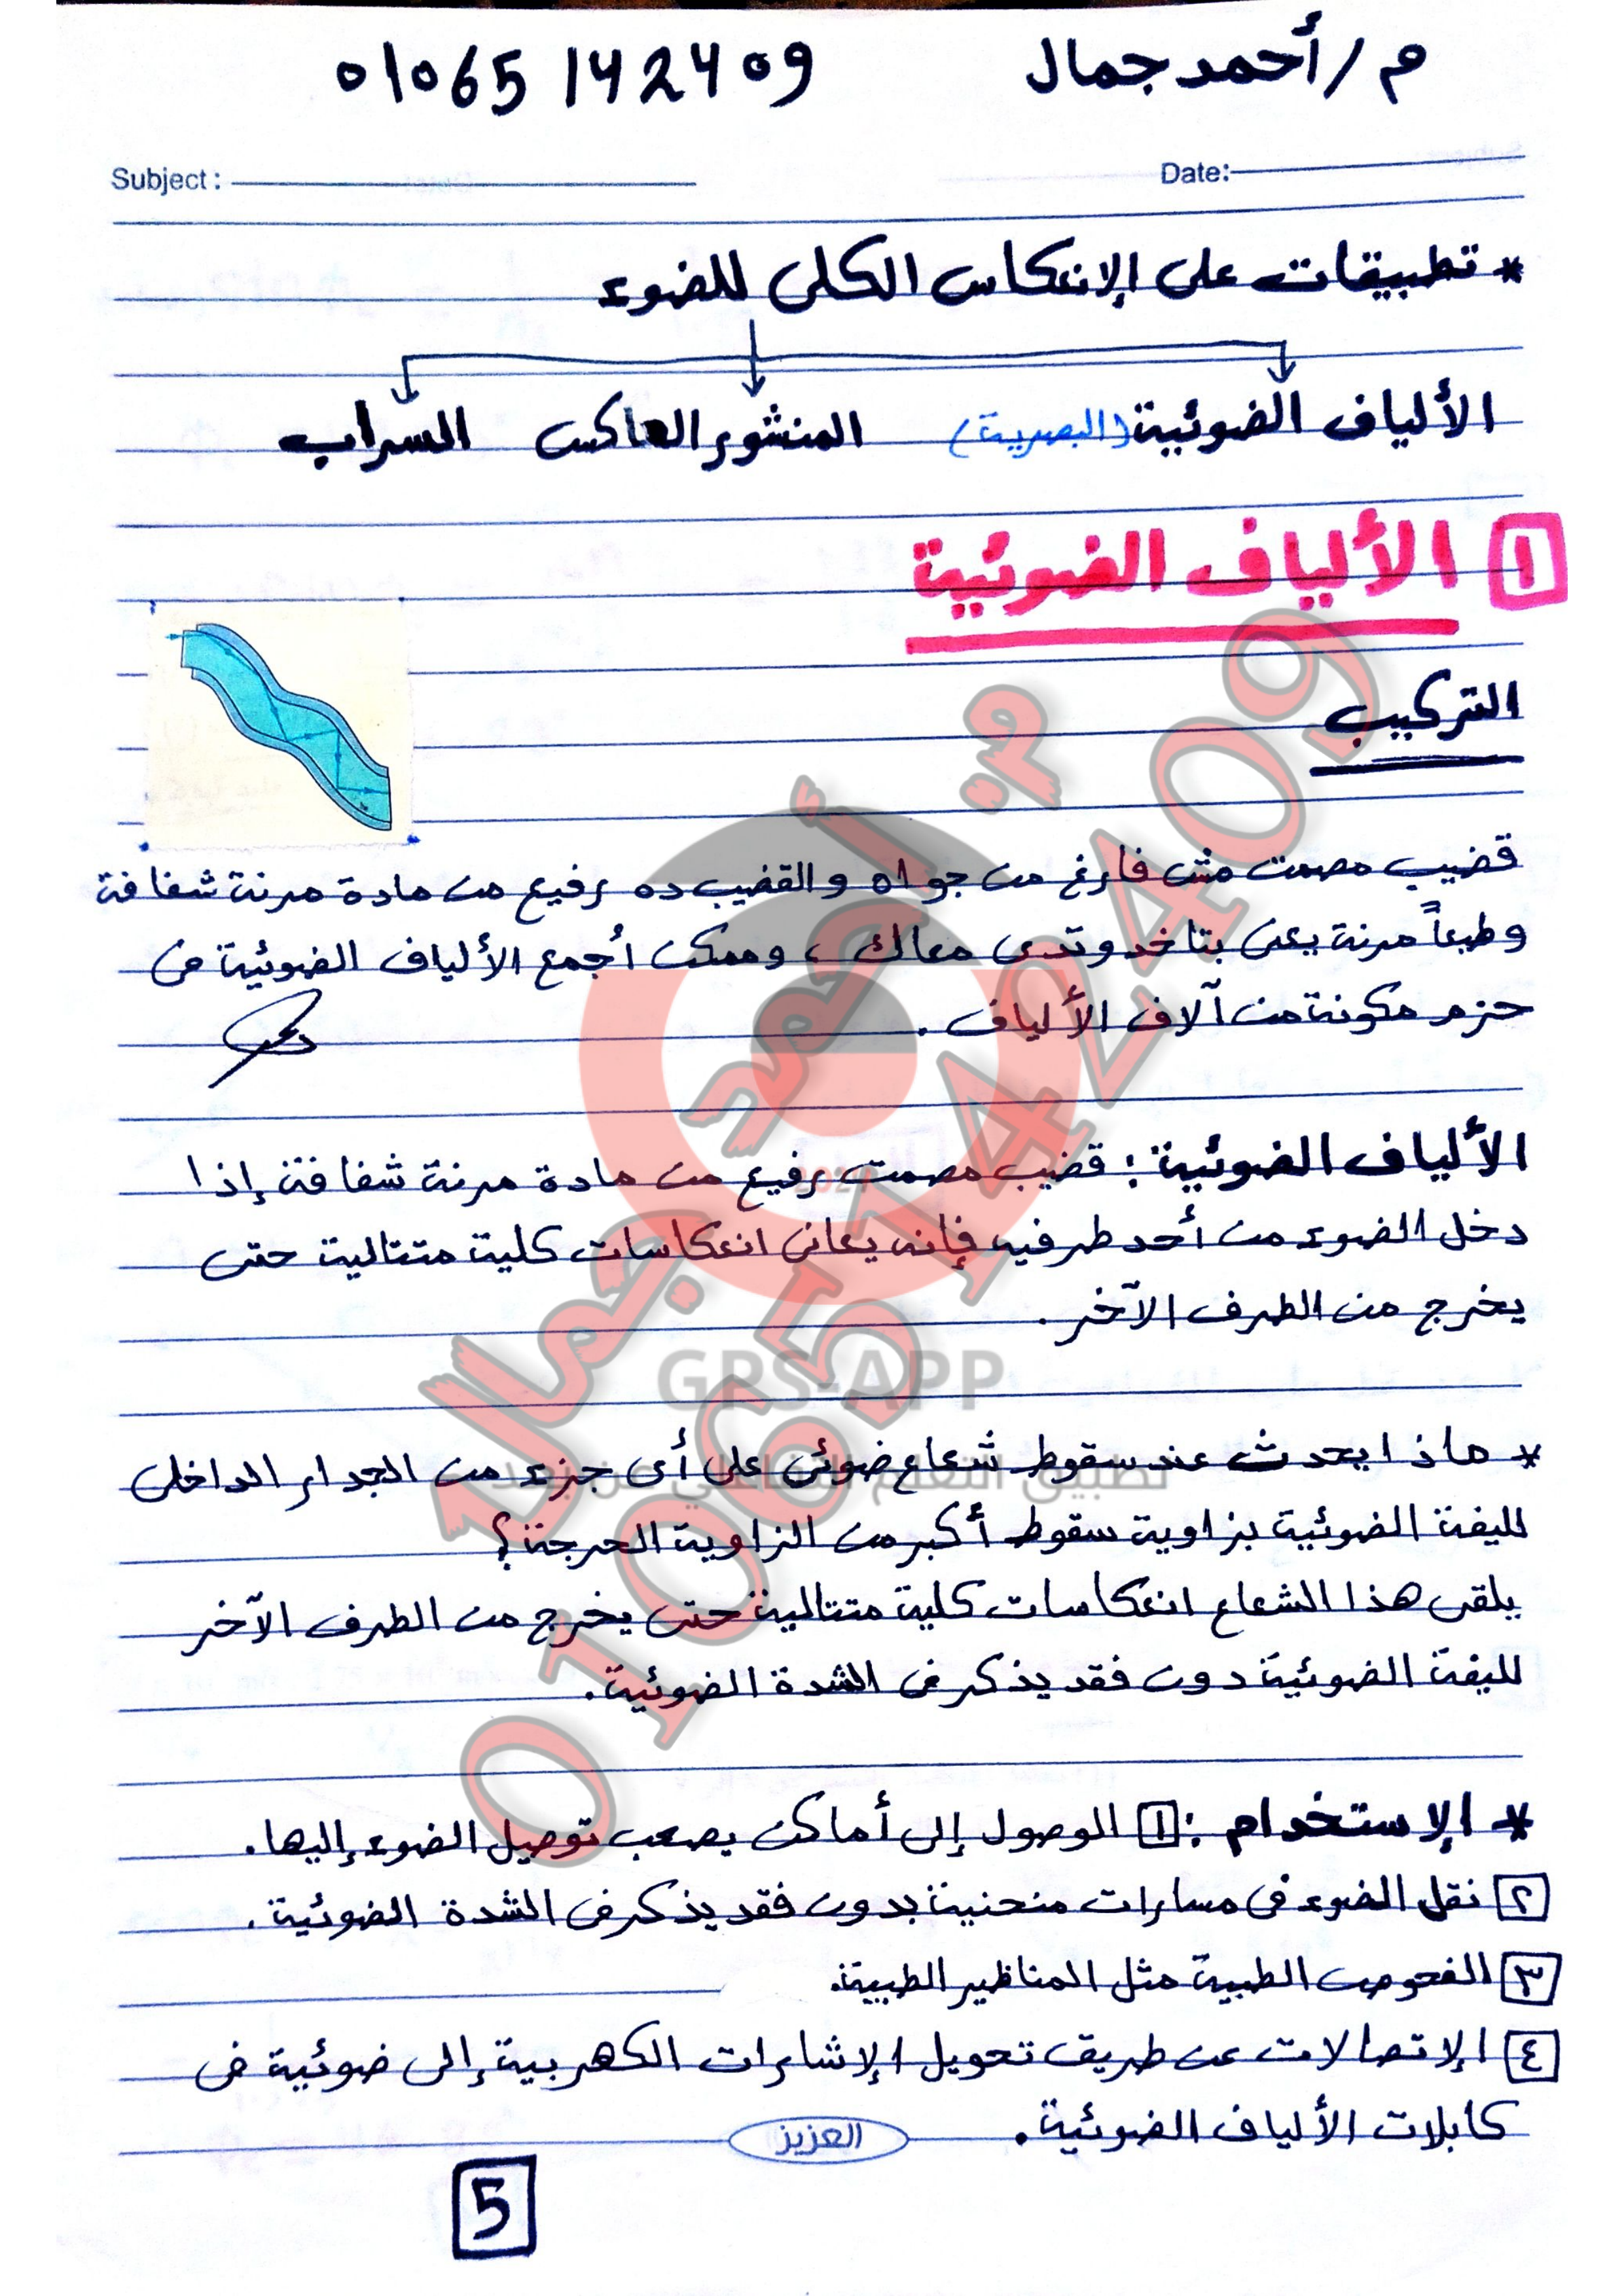 م/أحمد جمال 01065142409
Subject: Date:
* تطبيقات على الإنعكاس الكلى للضوء
الألياف الضوئية (البصرية) المنشور العاكس السراب
١ الألياف الضوئية
التركيب
قضيب مصمت مش فارغ من جواه والقضيب ده رفيع من مادة مرنة شفافة
وطبعاً مرنة يعنى بتاخد وتدى معاك ، وممكن أجمع الألياف الضوئية فى
حزم مكونة من آلاف الألياف .
الألياف الضوئية : قضيب مصمت رفيع من مادة مرنة شفافة إذا
دخل الضوء من أحد طرفيه فإنه يعانى انعكاسات كلية متتالية حتى
يخرج من الطرف الآخر .
* ماذا يحدث عند سقوط شعاع ضوئى على أى جزء من الجدار الداخلى
لليفة الضوئية بزاوية سقوط أكبر من الزاوية الحرجة ؟
يلقى هذا الشعاع انعكاسات كلية متتالية حتى يخرج من الطرف الآخر
لليفة الضوئية دون فقد يذكر فى الشدة الضوئية .
* الإستخدام : ١ الوصول إلى أماكن يصعب توصيل الضوء إليها .
٢ نقل الضوء فى مسارات منحنية بدون فقد يذكر فى الشدة الضوئية .
٣ الفحوص الطبية مثل المناظير الطبية .
٤ الإتصالات عن طريق تحويل الإشارات الكهربية إلى ضوئية فى
كابلات الألياف الضوئية .
العزيز
5
م. أحمد جمال
01065142409
GPS-APP